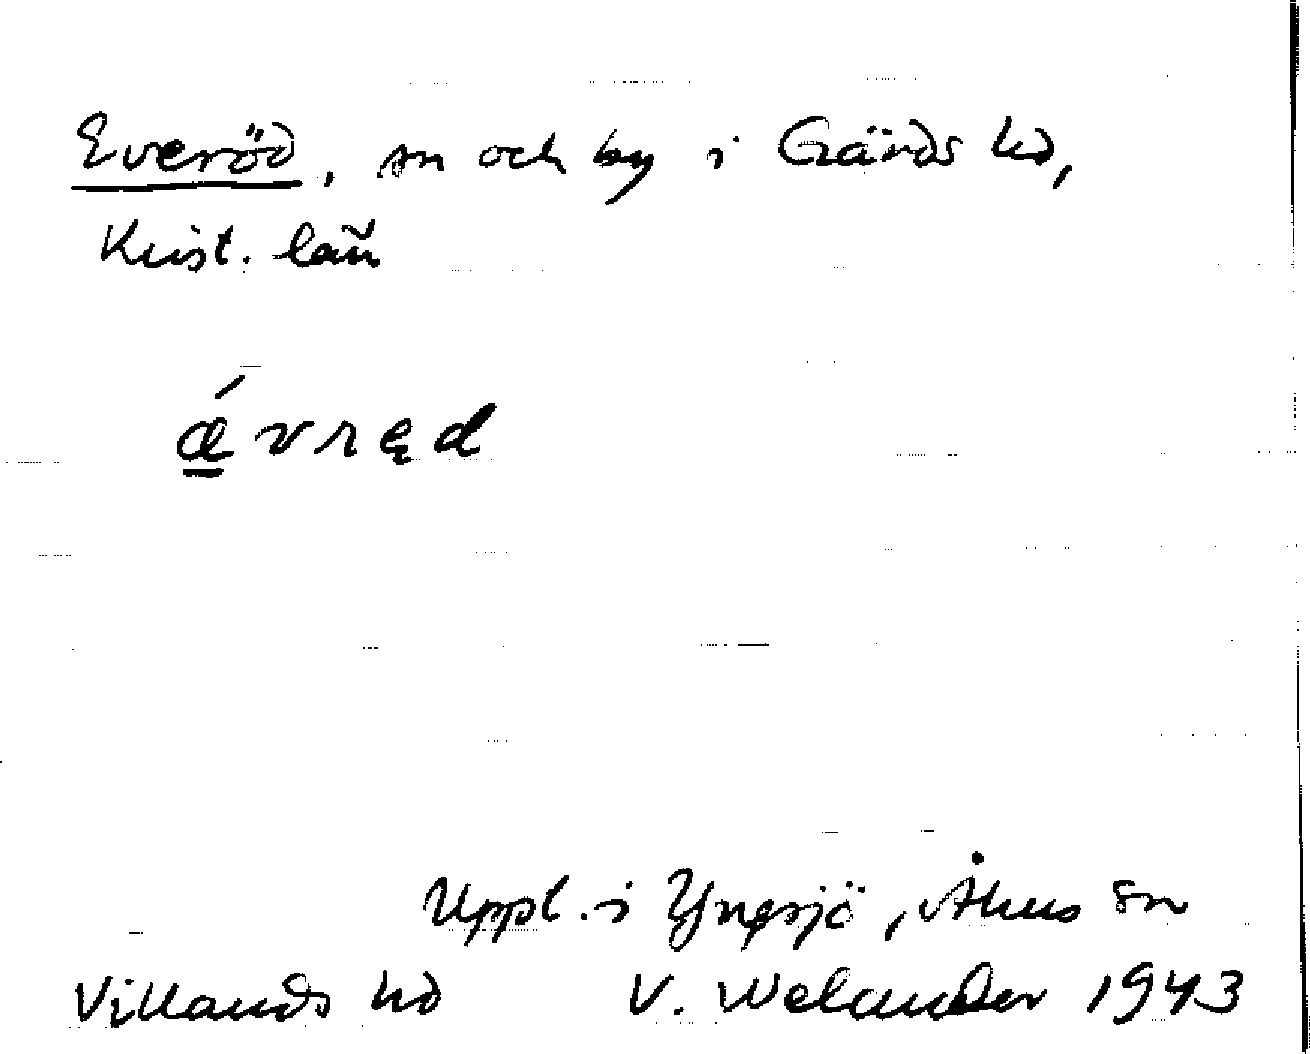 Everöd, sn och by i Gärds hd,
Krist. län
ǽ̲ v r ę d
Uppt. i Yngsjö, Åhus sn
Villands hd V. Welander 1943